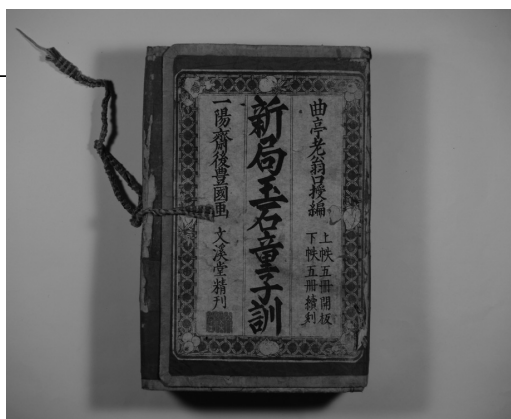 曲亭老翁口授編
上帙五冊開板
下帙五冊續刻
新局玉石童子訓
一陽齋後豊國画
文溪堂精刊